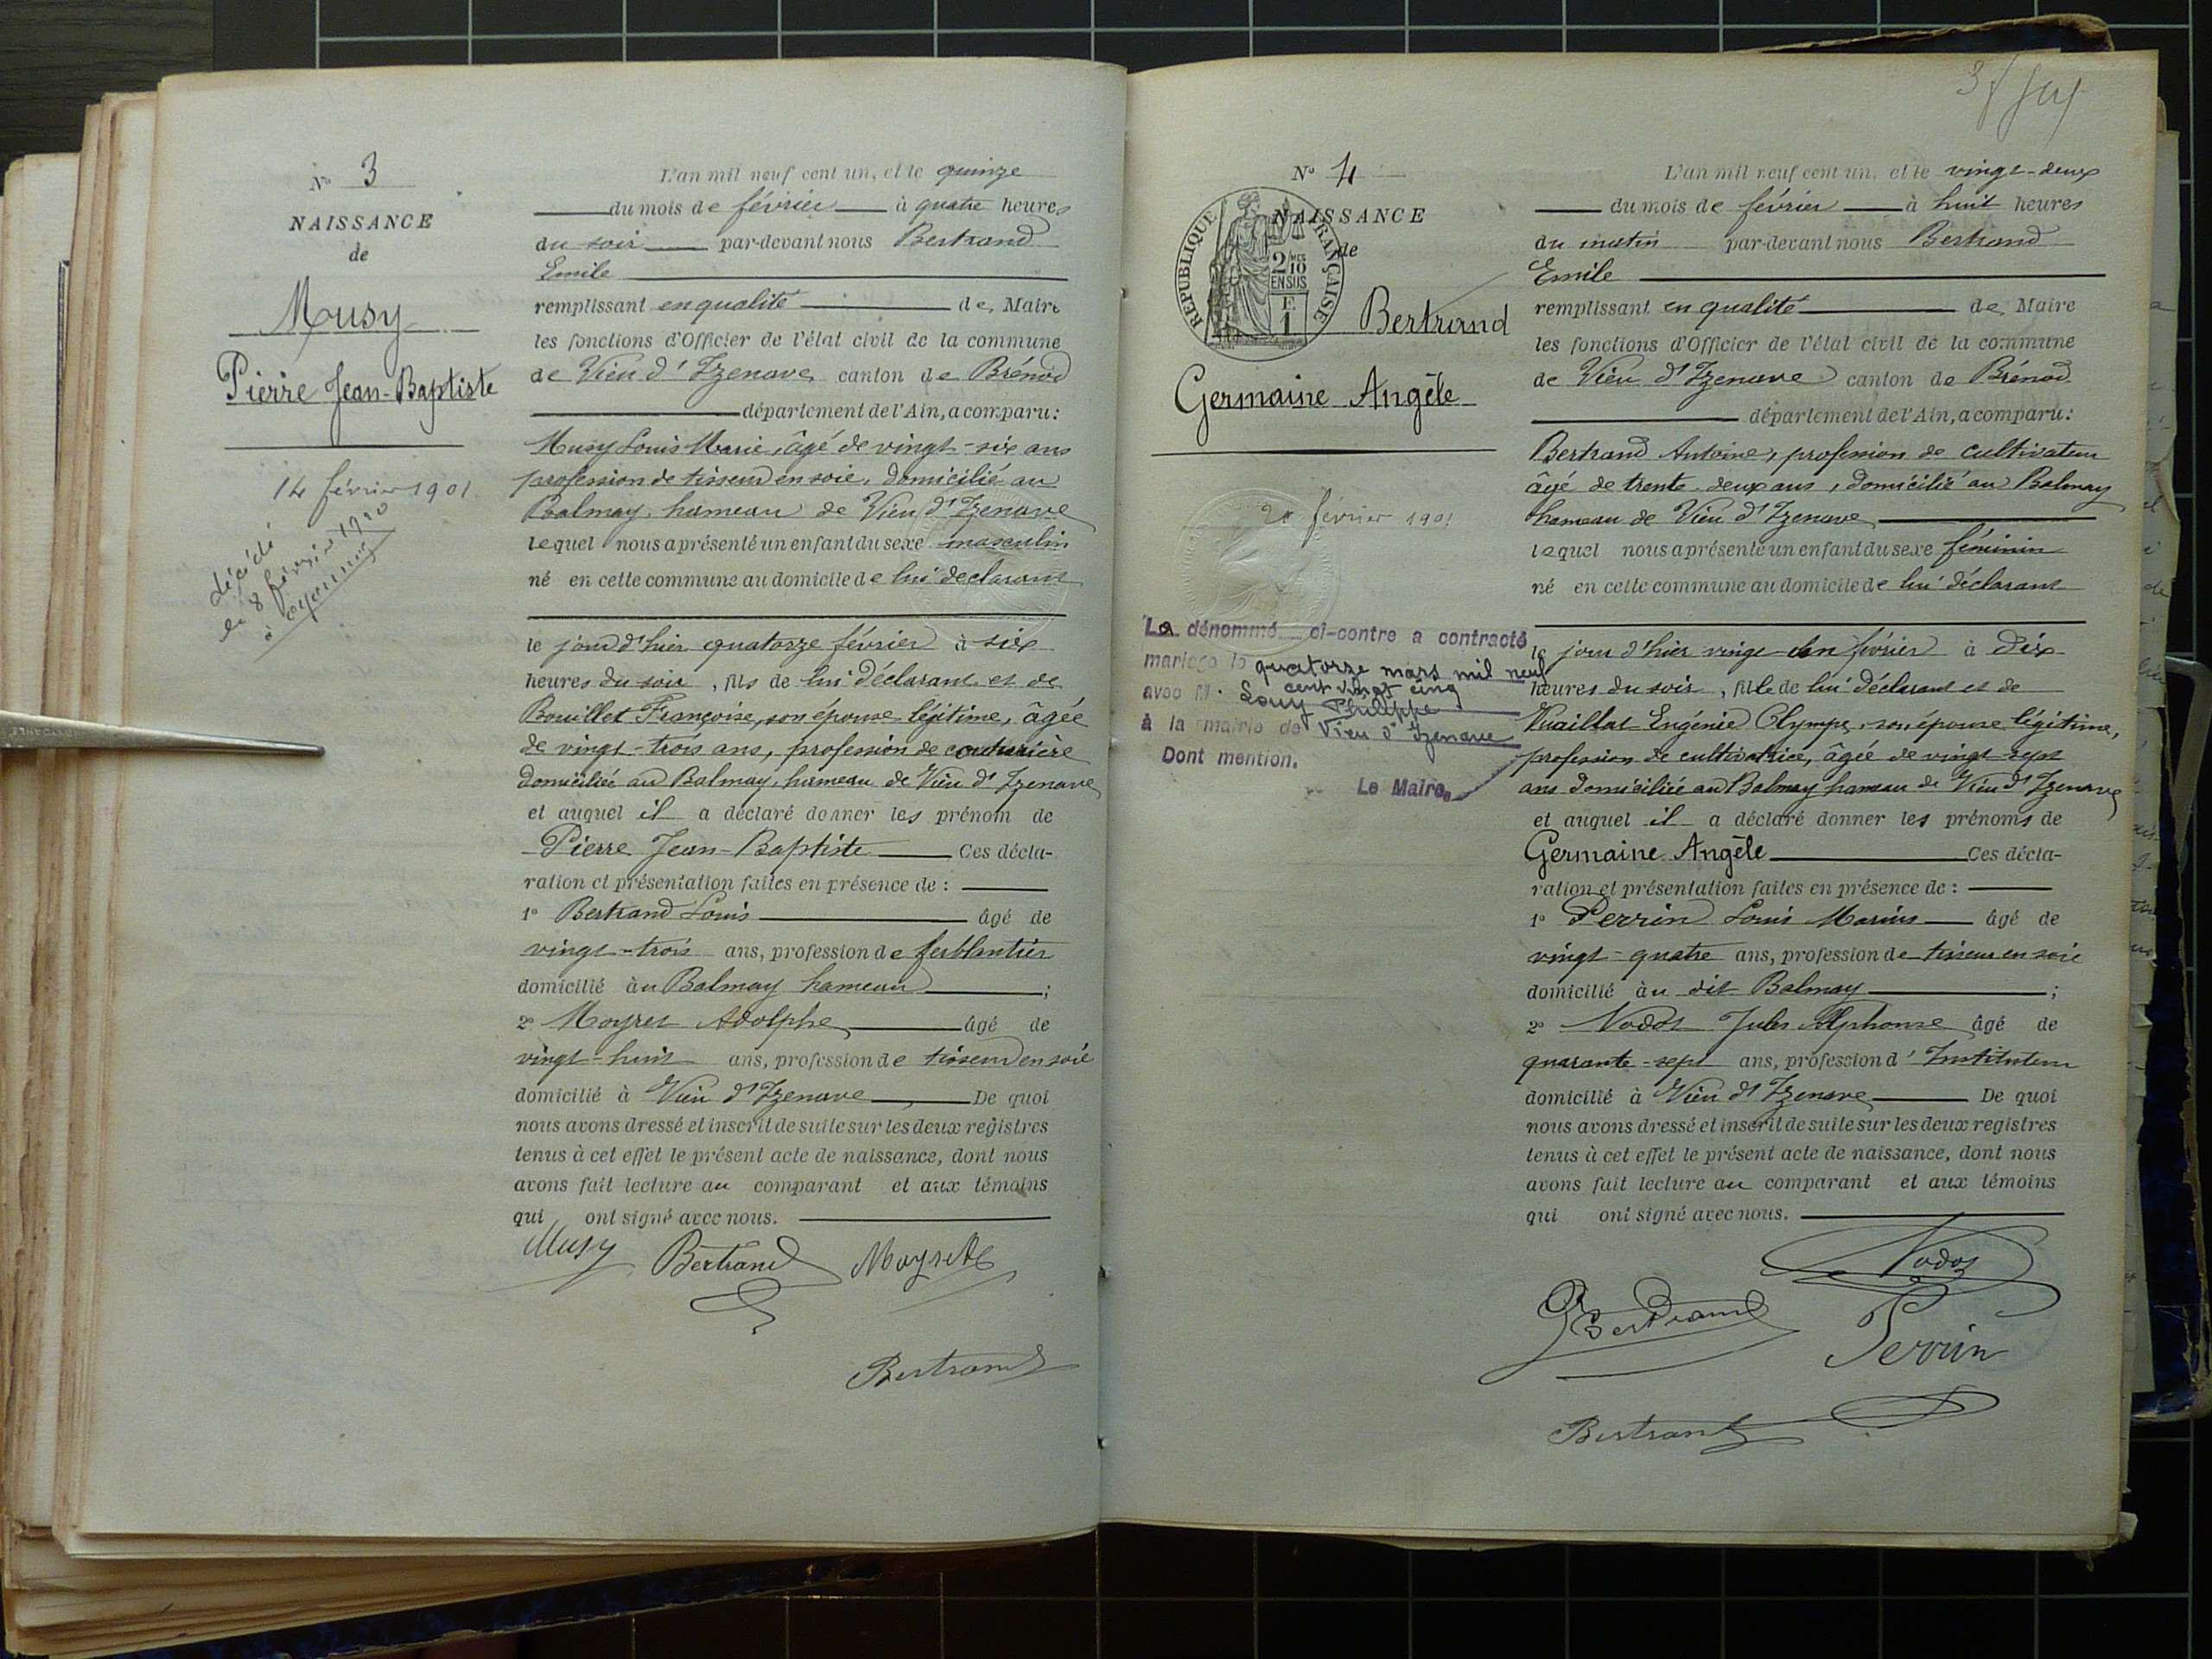 N° 3
NAISSANCE
de
Musy
Pierre Jean-Baptiste
14 février 1901
décédé
le 8 février 1920
à
L'an mil neuf cent un, et le quinze
du mois de février à quatre heures
du soir par-devant nous Bertrand
Emile
remplissant en qualité de Maire
les fonctions d'Officier de l'état civil de la commune
de Vieu d'Izenave canton de Brénod
département de l'Ain, a comparu :
Musy Louis Marie, âgé de vingt-six ans
profession de tisseur en soie, domicilié au
Balmay, hameau de Vieu d'Izenave
lequel nous a présenté un enfant du sexe masculin
né en cette commune au domicile de lui déclarant
le jour d'hier quatorze février à six
heures du soir, fils de lui déclarant et de
Bouillet Françoise, son épouse légitime, âgée
de vingt-trois ans, profession de couturière
domiciliée au Balmay, hameau de Vieu d'Izenave
et auquel il a déclaré donner les prénom de
Pierre Jean-Baptiste Ces décla-
ration et présentation faites en présence de :
1° Bertrand Louis âgé de
vingt-trois ans, profession de ferblantier
domicilié au Balmay hameau ;
2° Moyret Adolphe, âgé de
vingt-huit ans, profession de tisseur en soie
domicilié à Vieu d'Izenave, De quoi
nous avons dressé et inscrit de suite sur les deux registres
tenus à cet effet le présent acte de naissance, dont nous
avons fait lecture au comparant et aux témoins
qui ont signé avec nous.
Musy Bertrand Moyret
Bertrand
N° 4
REPUBLIQUE FRANÇAISE
2/10 EN SUS
NAISSANCE
de
Bertrand
Germaine Angèle
février 1901
La dénommé ci-contre a contracté
mariage le quatorze mars mil neuf
cent vingt cinq
avec M. Louy Philippe
à la mairie de Vieu d'Izenave
Dont mention.
Le Maire,
L'an mil neuf cent un, et le vingt-deux
du mois de février à huit heures
du matin par-devant nous Bertrand
Emile
remplissant en qualité de Maire
les fonctions d'Officier de l'état civil de la commune
de Vieu d'Izenave canton de Brénod
département de l'Ain, a comparu :
Bertrand Antoine, profession de cultivateur
âgé de trente-deux ans, domicilié au Balmay
hameau de Vieu d'Izenave
lequel nous a présenté un enfant du sexe féminin
né en cette commune au domicile de lui déclarant
le jour d'hier vingt-un février à dix
heures du soir, fille de lui déclarant et de
Vuaillat Eugénie Olympe, son épouse légitime,
profession de cultivatrice, âgée de vingt-sept
ans domiciliée au Balmay hameau de Vieu d'Izenave
et auquel il a déclaré donner les prénoms de
Germaine Angèle Ces décla-
ration et présentation faites en présence de :
1° Perrin Louis Marius âgé de
vingt-quatre ans, profession de tisseur en soie
domicilié au dit Balmay ;
2° Nodot Jules Alphonse âgé de
quarante-sept ans, profession d'Instituteur
domicilié à Vieu d'Izenave De quoi
nous avons dressé et inscrit de suite sur les deux registres
tenus à cet effet le présent acte de naissance, dont nous
avons fait lecture au comparant et aux témoins
qui ont signé avec nous.
Nodot
Bertrand
Perrin
Bertrand